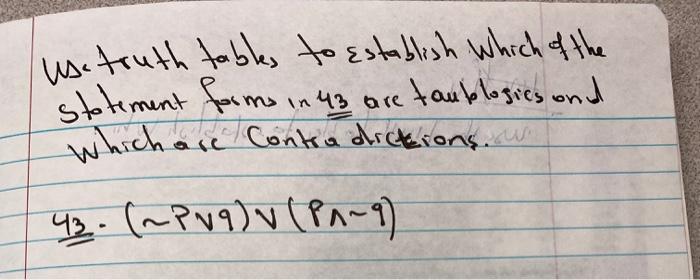 Use truth tables to Establish Which of the
statement forms in 43 are tautologies and
which are Contradictions.
43. (~P∨q)∨(P∧~q)